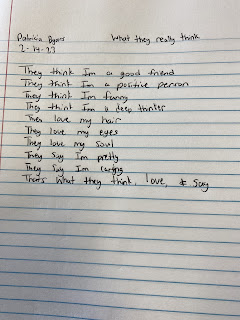 Patricia Byars What they really think
2-14-23
They think I'm a good friend
They think I'm a positive person
They think I'm funny
They think I'm a deep thinker
They love my hair
They love my eyes
They love my soul
They Say I'm pretty
They Say I'm caring
That's what they think, love, & Say